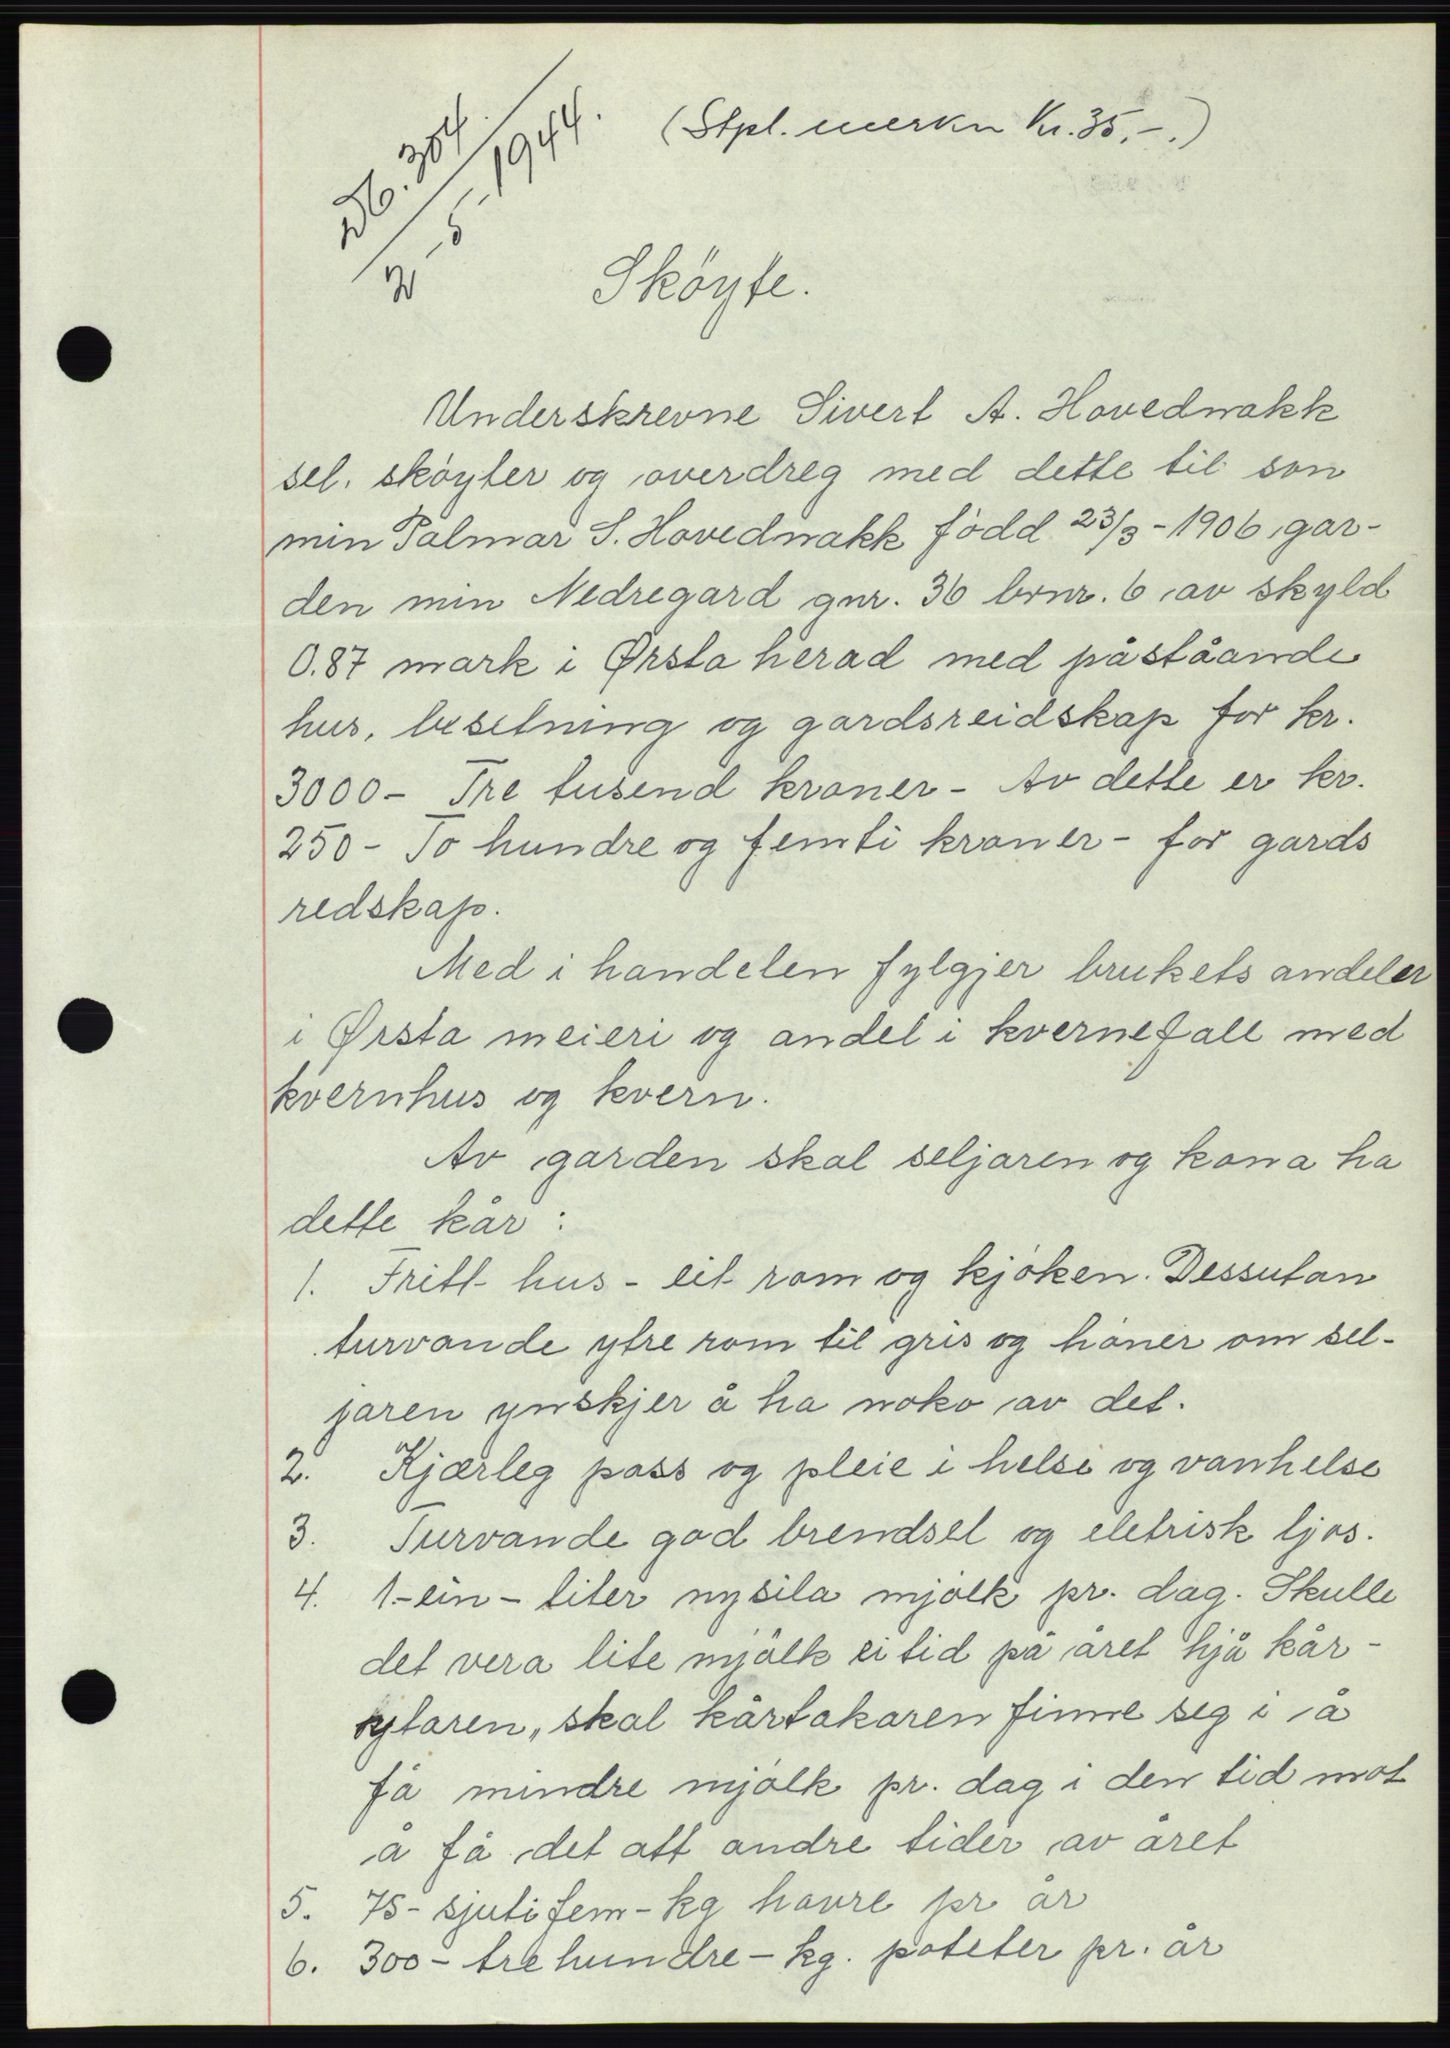 Db. 304.
2-5-1944.
(Stpl. merkn Kr. 35,-.)
Sköyte.
Underskrevne Sivert A. Hovednakk
sel. sköyter og overdreg med dette til son
min Palmar S. Hovednakk född 23/3-1906 gar-
den min Nedregard gnr. 36 brnr. 6 av skyld
0.87 mark i Ørsta herad med påståande
hus, besetning og gardsreidskap for kr.
3000- Tre tusend kroner- Av dette er kr.
250- To hundre og femti kroner- for gards
redskap.
Med i handelen fylgjer brukets andeler
i Ørsta meieri og andel i kvernefall med
kvernhus og kvern.
Av garden skal seljaren og kona ha
dette kår:
1. Fritt hus- eit rom og kjöken. Dessutan
turvande ytre rom til gris og höner om sel-
jaren ynskjer å ha noko av det.
2. Kjærleg pass og pleie i helse og vanhelse
3. Turvande god brendsel og eletrisk ljos.
4. 1-ein- liter nysila mjölk pr. dag. Skulle
det vera lite mjölk ei tid på året hjå kår-
ytaren, skal kårtakaren finne seg i å
få mindre mjölk pr. dag i den tid mot
å få det att andre tider av året
5. 75- sjuti fem- kg havre pr år
6. 300- tre hundre- kg. poteter pr. år